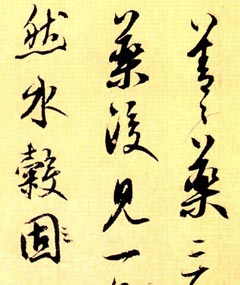 藥二
藥後見一
然水穀固